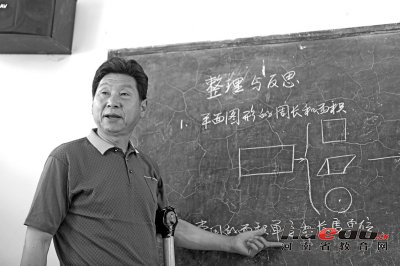 整理与反思
1. 平面图形的周长和面积
长度单位
河南省教育网